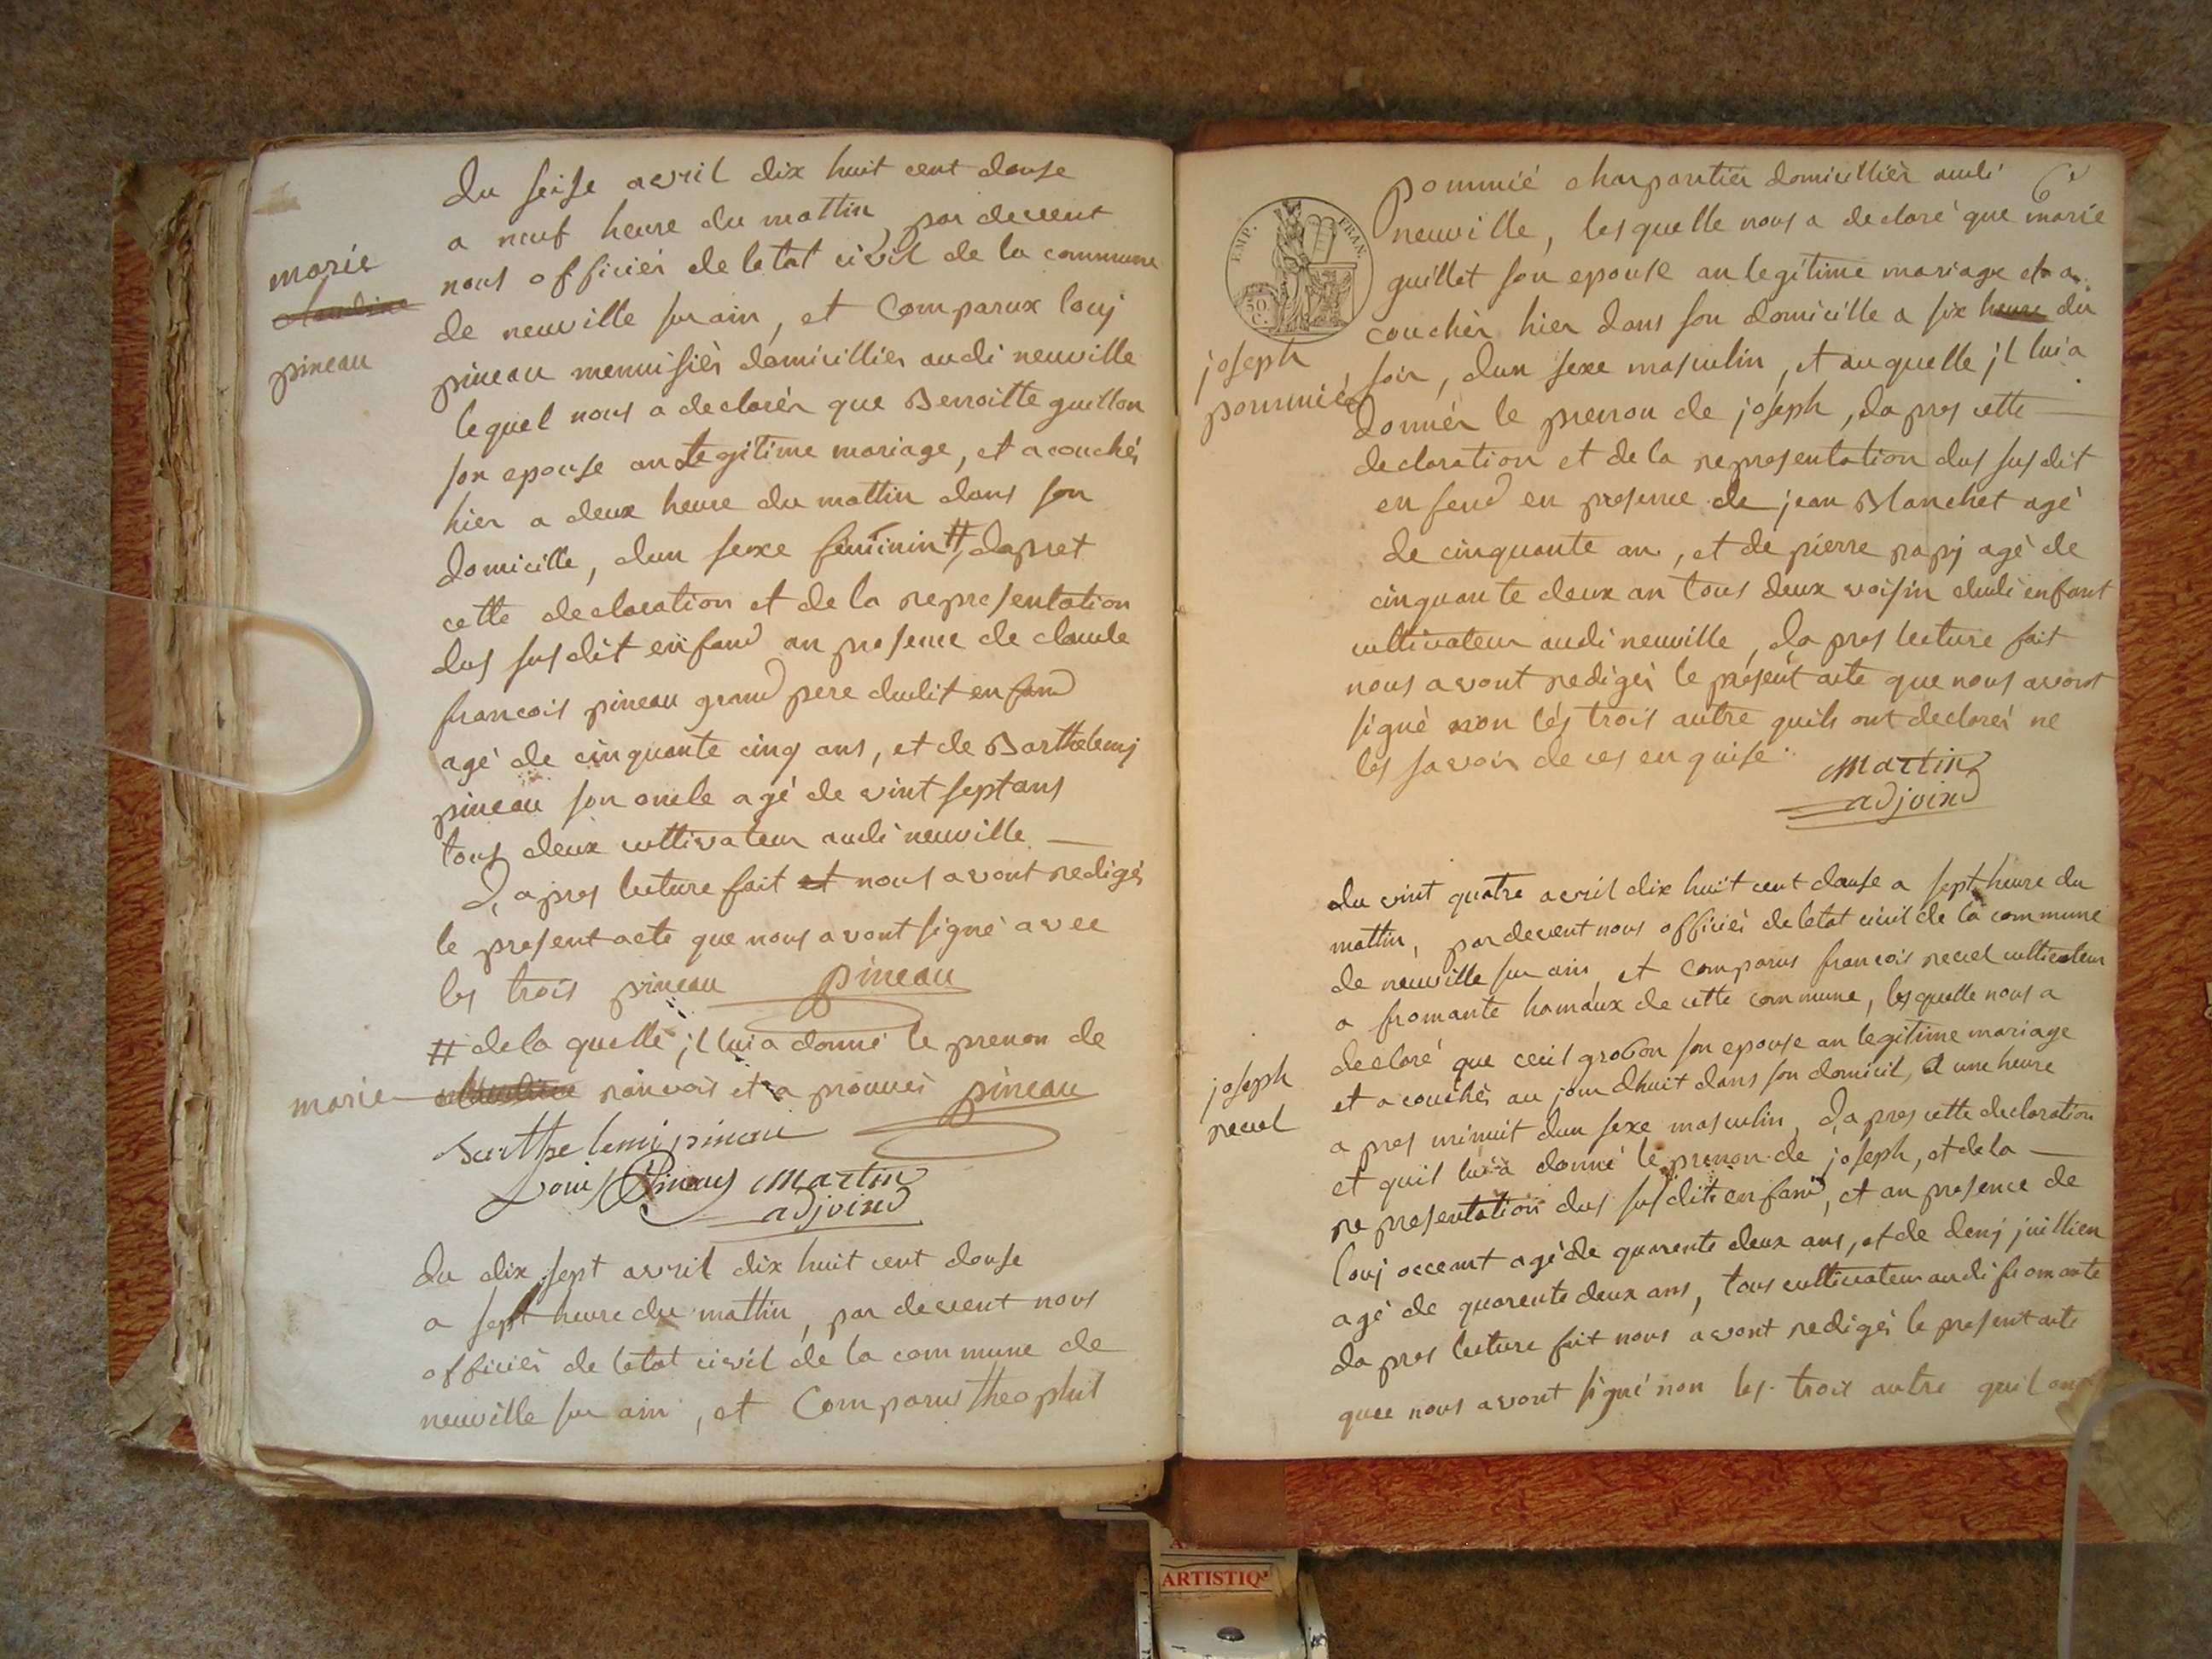 du seise avril dix huit cent douse
a neuf heure du mattin, par devent
nous officiér de letat civil de la commune
de neuville sur ain, et Comparux louj
pineau menuisièr domicilliér audi neuville
lequel nous a declarér que Benoitte guillon
son epouse an legitime mariage, et acouchér
hier a deux heure du mattin dans son
domicille, dun sexe feminin #, dapret
cette declaration et de la representation
dus susdit enfand an presence de claude
francois pineau grand pere dudit enfand
agé de cinquante cinq ans, et de Barthelemj
pineau son oncle agé de vint sept ans
tous deux cultivateur audi neuville
Dapres lecture fait et nous avont redigér
le present acte que nous avont signé avec
les trois pineau pineau
# dela quelle jl lui a donné le prenon de
marie claudine ranvois et a prouvér pineau
Barthelemi pineau
Louis Pineau Martin
adjoind
marie
claudine
pineau
du dix sept avril dix huit cent douse
a sept heure du mattin, par devent nous
officiér de letat civil de la commune de
neuville sur ain, et Comparus theophil
6
EMP. FRAN.
50 C.
pommié charpantier domicilliér audi
neuville, lesquelle nous a declaré que marie
guillet son epouse an legitime mariage et a
couchér hier dans son domicille a six heure du
soir, dun sexe masculin, et auquelle jl lui a
donnér le prenon de joseph, dapres cette
declaration et de la representation dus susdit
enfend en presence de jean Blanchet agé
de cinquante an, et de pierre papj agé de
cinquante deux an tous deux voisin dudi enfant
cultivateur audi neuville, dapres lecture fait
nous avont redigér le présent acte que nous avont
signé non lés trois autre quils ont declarér ne
les savoir de ces enquise
Martin
adjoind
joseph
pommiér
du vint quatre avril dix huit cent douse a sept heure du
mattin, par devent nous officiér de letat civil de la commune
de neuville sur ain, et comparus francois revel cultivateur
a fromante hamaux de cette commune, lesquelle nous a
declaré que cecil grobon son epouse an legitime mariage
et acouchér au jourdhuit dans son domicil, a une heure
apres minuit dun sexe masculin, dapres cette declaration
et quil lui a donné le prenon de joseph, et de la
representation dus susdit enfand, et an presence de
louj occeant agé de quarente deux ans, et de denj juillien
agé de quarente deux ans, tous cultivateur audi fromante
dapres lecture fait nous avont redigér le present acte
que nous avont signé non les trois autre quil ont
joseph
revel
ARTISTIQ